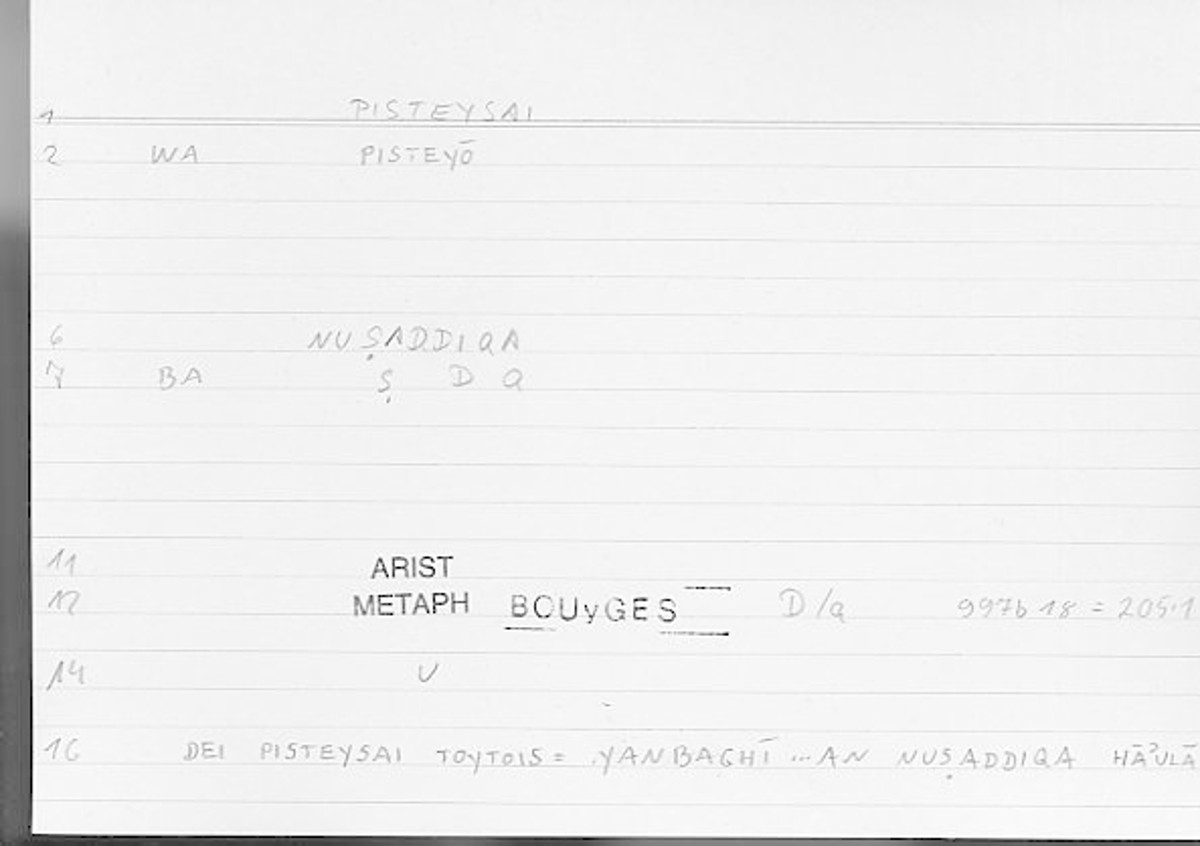 1 PISTEYSAI
2 WA PISTEYŌ
6 NUṢADDIQA
7 BA Ṣ D Q
11 ARIST
12 METAPH BOUyGES D/a 997b 18 = 205.1
14 U
16 DEI PISTEYSAI TOYTOIS = YANBAGHĪ ... AN NUṢADDIQA HĀʾULĀ